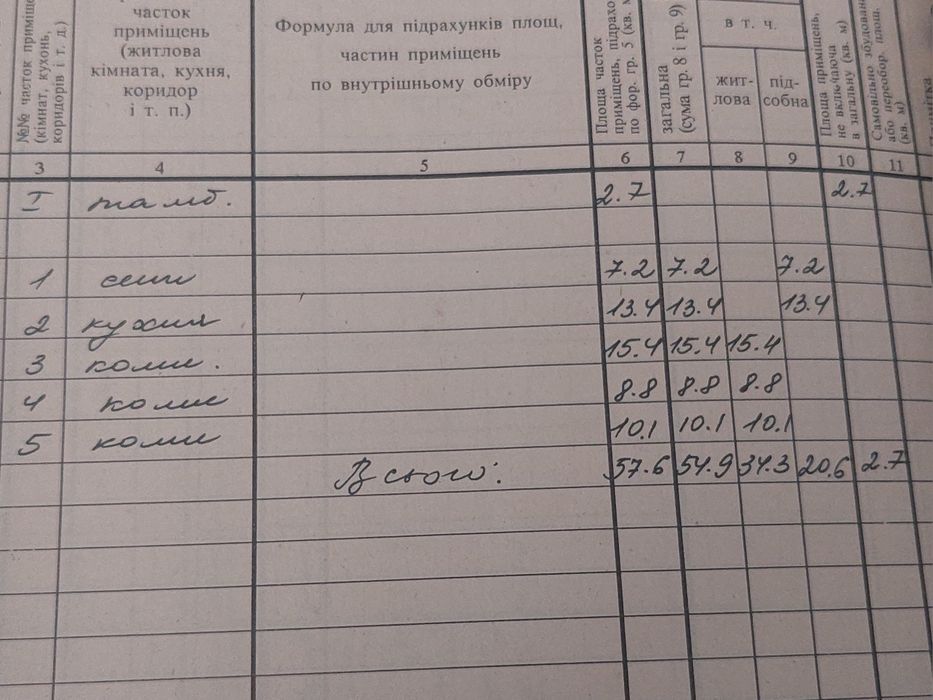 №№ часток приміще
(кімнат, кухонь,
коридорів і т. д.)
часток
приміщень
(житлова
кімната, кухня,
коридор
і т. п.)
Формула для підрахунків площ,
частин приміщень
по внутрішньому обміру
Площа часток
приміщень, підрахо
по фор. гр. 5 (кв. м
загальна
(сума гр. 8 і гр. 9)
в т. ч.
жит-
лова
під-
собна
Площа приміщень,
не включаюча
в загальну (кв. м)
Самовільно збудована
або переобор. площ.
(кв. м)
3 4 5 6 7 8 9 10 11
I тамб. 2.7 2.7
1 сени 7.2 7.2 7.2
2 кухня 13.4 13.4 13.4
3 комн. 15.4 15.4 15.4
4 комн 8.8 8.8 8.8
5 комн 10.1 10.1 10.1
Всього: 57.6 54.9 34.3 20.6 2.7